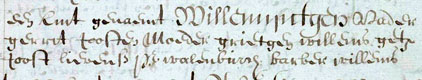 een kint genaemt Willemyntgen Vader
gerrit joosten Moeder grietgen willems get
joost lievens walenburch barber willems